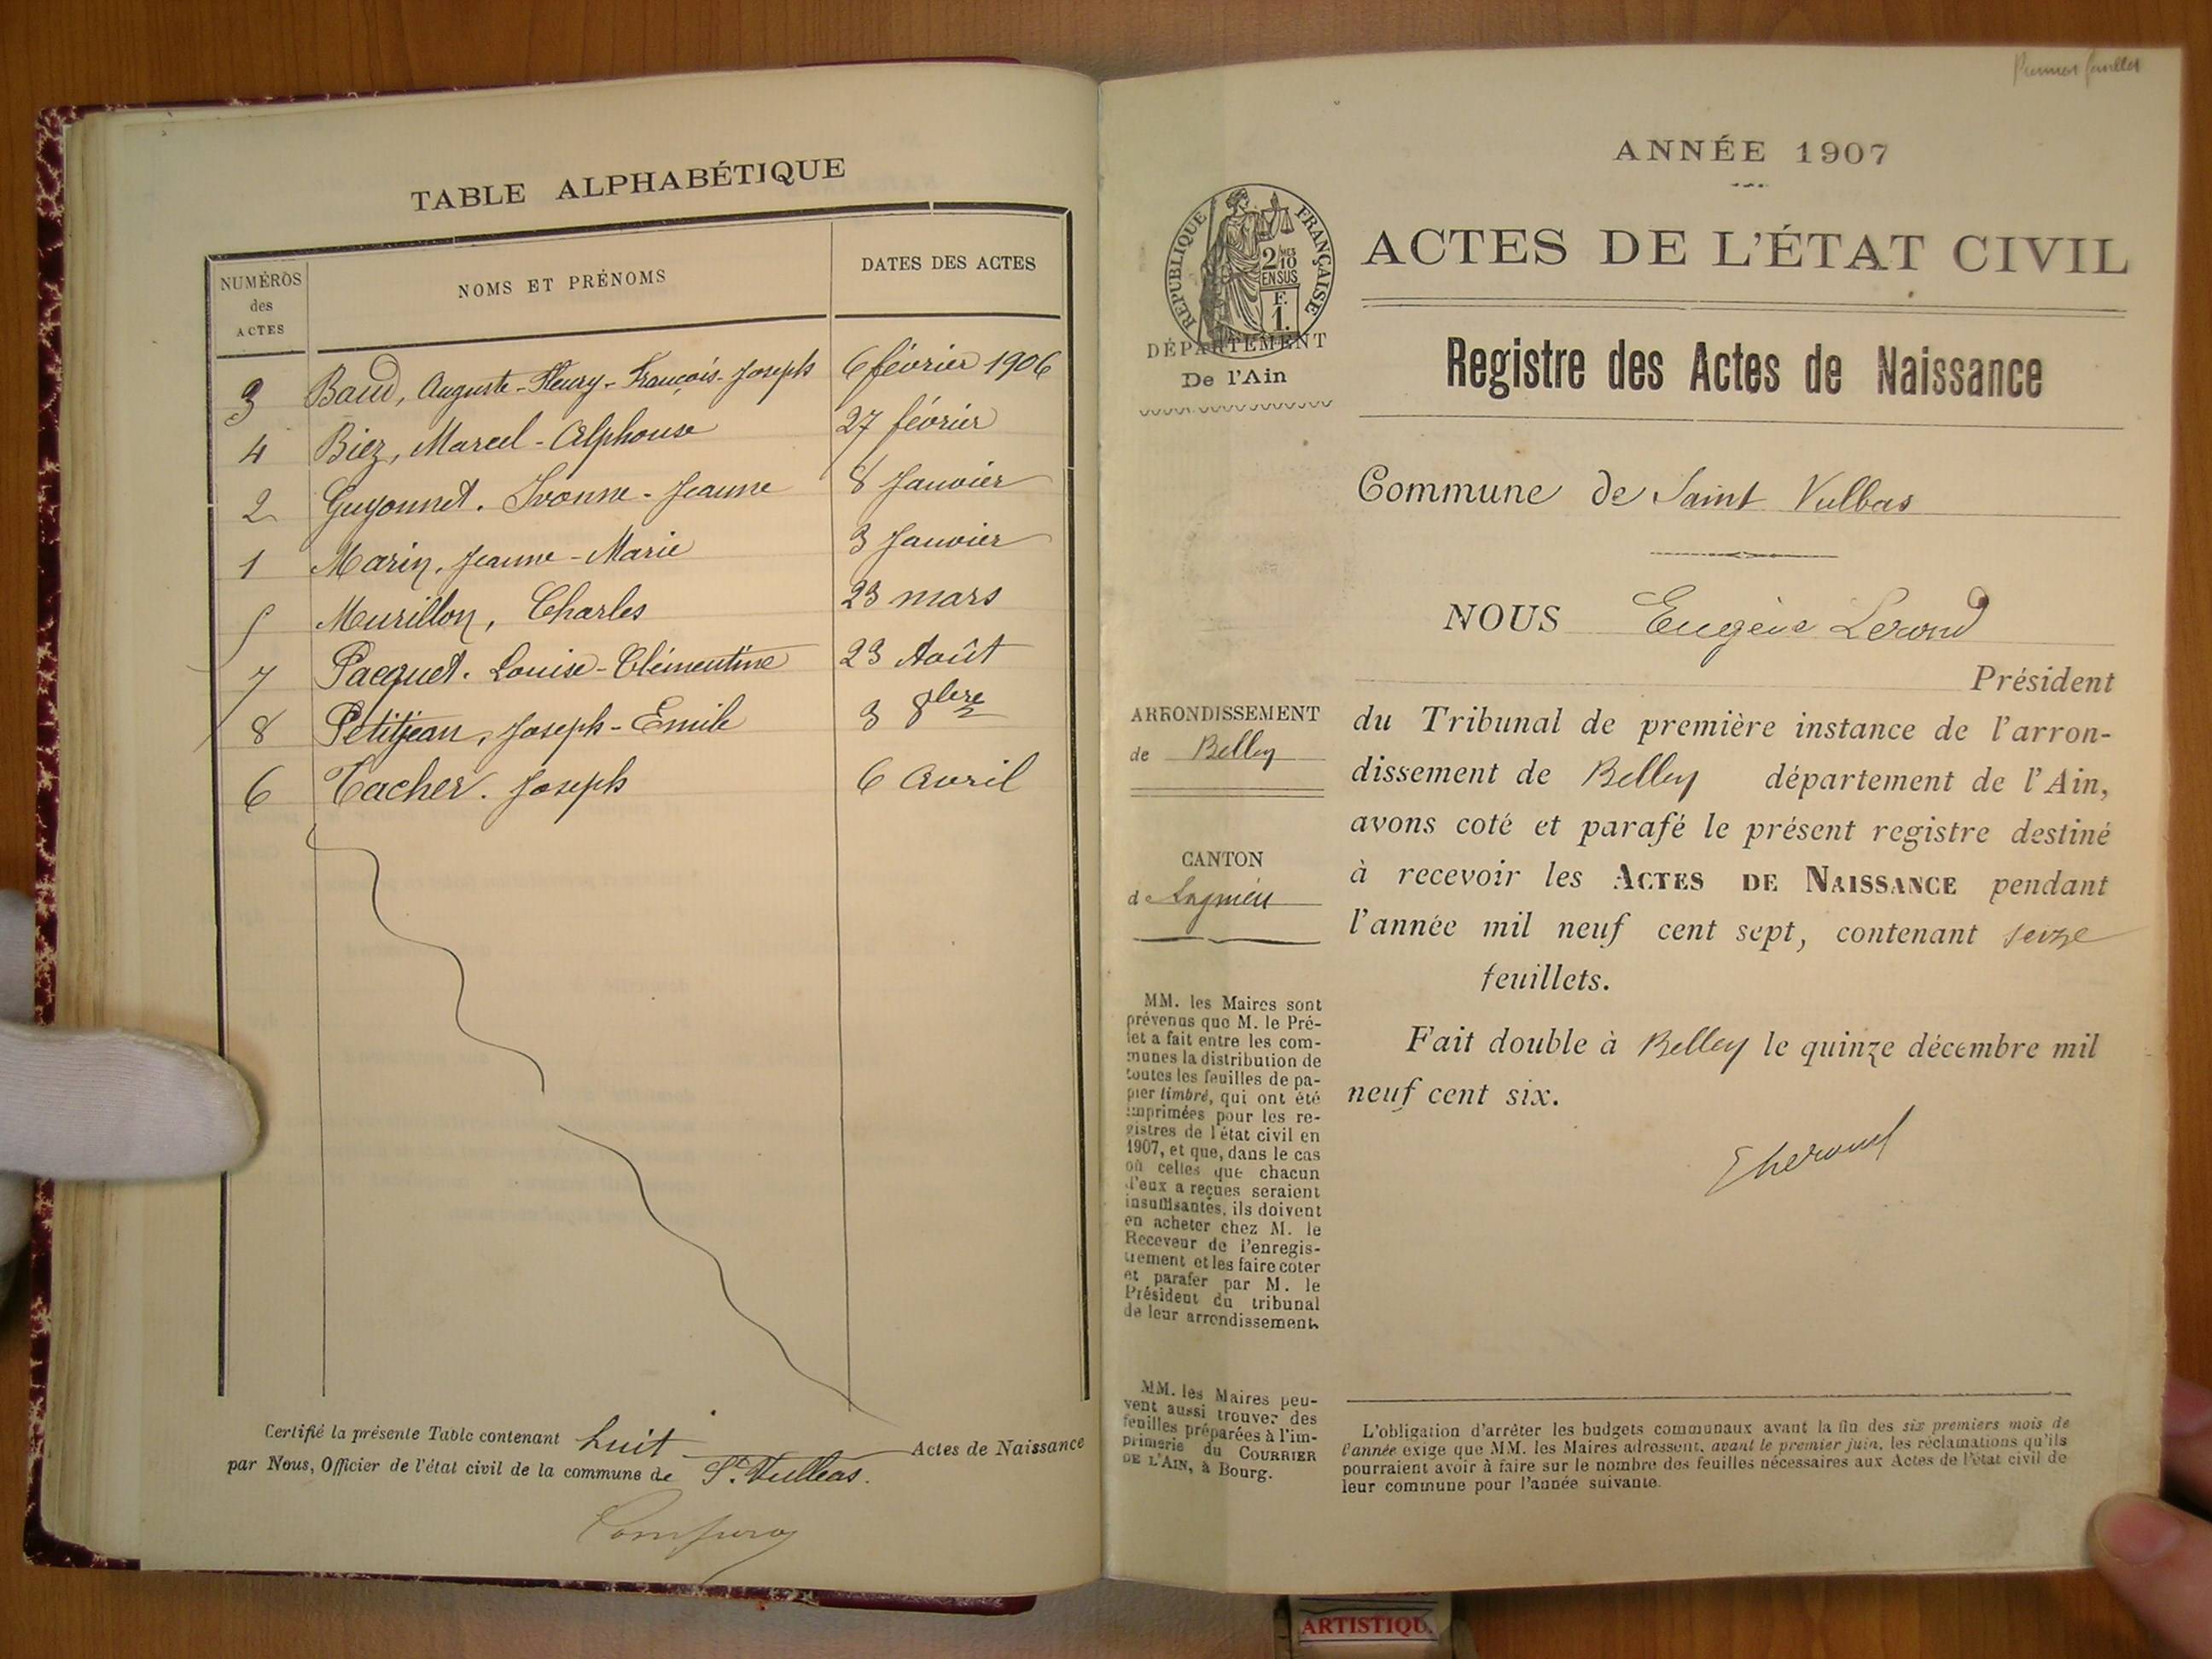 TABLE ALPHABÉTIQUE
NUMÉROS des ACTES
NOMS ET PRÉNOMS
DATES DES ACTES
3 Baud, Auguste-Fleury-François-Joseph 6 février 1906
4 Biez, Marcel-Alphonse 27 février
2 Guyonnet. Ivonne-Jeanne 8 Janvier
1 Marin, Jeanne-Marie 3 Janvier
5 Murillon, Charles 23 mars
7 Pacquet. Louise-Clémentine 23 Août
8 Petitjean, Joseph-Emile 3 8bre
6 Tacher. Joseph 6 Avril
Certifié la présente Table contenant huit Actes de Naissance
par Nous, Officier de l'état civil de la commune de St. Vulbas.
Premier feuillet
ANNÉE 1907
RÉPUBLIQUE FRANÇAISE
2/10
EN SUS
F.
1.
DÉPARTEMENT
De l'Ain
ACTES DE L'ÉTAT CIVIL
Registre des Actes de Naissance
Commune de Saint Vulbas
NOUS Eugène Lerond
Président
du Tribunal de première instance de l'arron-
dissement de Belley département de l'Ain,
avons coté et parafé le présent registre destiné
à recevoir les ACTES DE NAISSANCE pendant
l'année mil neuf cent sept, contenant seize
feuillets.
Fait double à Belley le quinze décembre mil
neuf cent six.
ARRONDISSEMENT
de Belley
CANTON
de Lagnieu
MM. les Maires sont
prévenus que M. le Pré-
fet a fait entre les com-
munes la distribution de
toutes les feuilles de pa-
pier timbré, qui ont été
imprimées pour les re-
gistres de l'état civil en
1907, et que, dans le cas
où celles que chacun
d'eux a reçues seraient
insuffisantes, ils doivent
en acheter chez M. le
Receveur de l'enregis-
trement et les faire coter
et parafer par M. le
Président du tribunal
de leur arrondissement.
MM. les Maires peu-
vent aussi trouver des
feuilles préparées à l'im-
primerie du COURRIER
DE L'AIN, à Bourg.
L'obligation d'arrêter les budgets communaux avant la fin des six premiers mois de
l'année exige que MM. les Maires adressent, avant le premier juin, les réclamations qu'ils
pourraient avoir à faire sur le nombre des feuilles nécessaires aux Actes de l'état civil de
leur commune pour l'année suivante.
ARTISTIQU